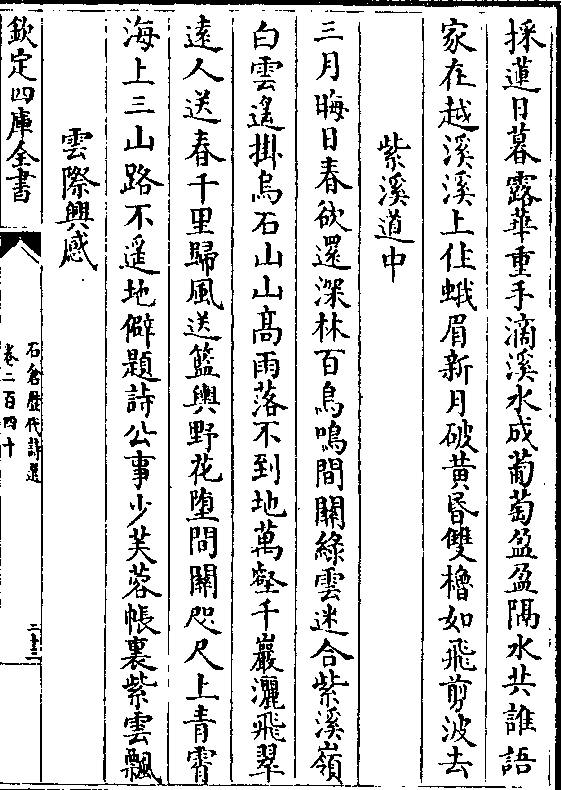 採蓮日暮露華重手滴溪水成葡萄盈盈隔水共誰語
家在越溪溪上住蛾眉新月破黃昏雙櫓如飛剪波去
紫溪道中
三月晦日春欲還深林百鳥鳴間關綠雲迷合紫溪嶺
白雲遙掛烏石山山高雨落不到地萬壑千巖灑飛翠
遠人送春千里歸風送籃輿野花墮間關咫尺上青霄
海上三山路不遥地僻題詩公事少芙蓉帳裏紫雲飄
雲際興感
欽定四庫全書
石倉歷代詩選
卷二百四十
二十三